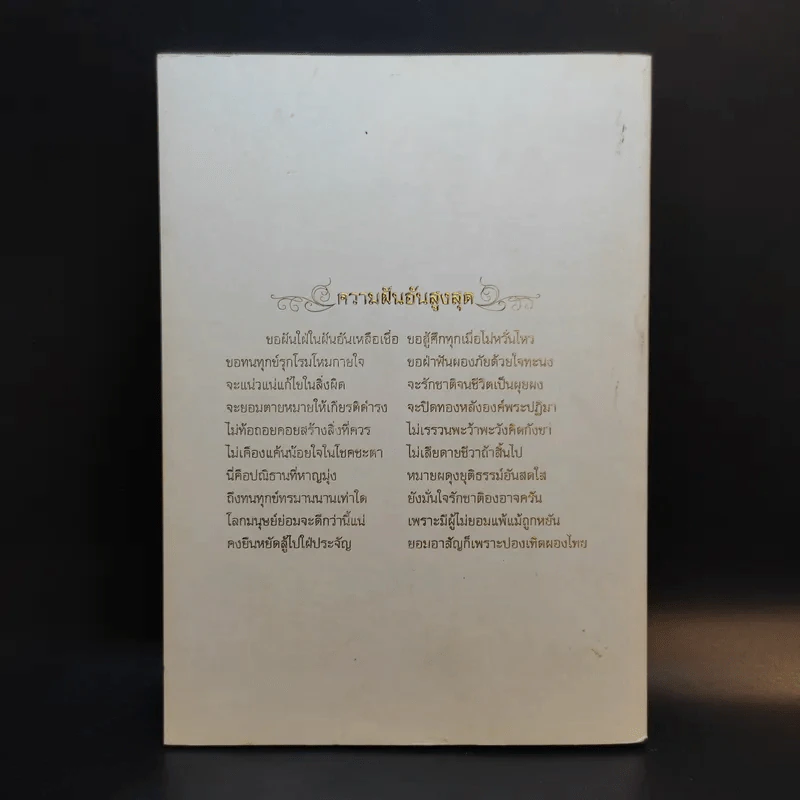 ความฝันอันสูงสุด
ขอฝันใฝ่ในฝันอันเหลือเชื่อ ขอสู้ศึกทุกเมื่อไม่หวั่นไหว
ขอทนทุกข์รุกโรมโหมกายใจ ขอฝ่าฟันผองภัยด้วยใจทะนง
จะแน่วแน่แก้ไขในสิ่งผิด จะรักชาติจนชีวิตเป็นผุยผง
จะยอมตายหมายให้เกียรติดำรง จะปิดทองหลังองค์พระปฏิมา
ไม่ท้อถอยคอยสร้างสิ่งที่ควร ไม่เรรวนพะว้าพะวังคิดกังขา
ไม่เคืองแค้นน้อยใจในโชคชะตา ไม่เสียดายชีวาถ้าสิ้นไป
นี่คือปณิธานที่หาญมุ่ง หมายผดุงยุติธรรม์อันสดใส
ถึงทนทุกข์ทรมานนานเท่าใด ยังมั่นใจรักชาติองอาจครัน
โลกมนุษย์ย่อมจะดีกว่านี้แน่ เพราะมีผู้ไม่ยอมแพ้แม้ถูกหยัน
คงยืนหยัดสู้ไปใฝ่ประจัญ ยอมอาสัญก็เพราะปองเทิดผองไทย